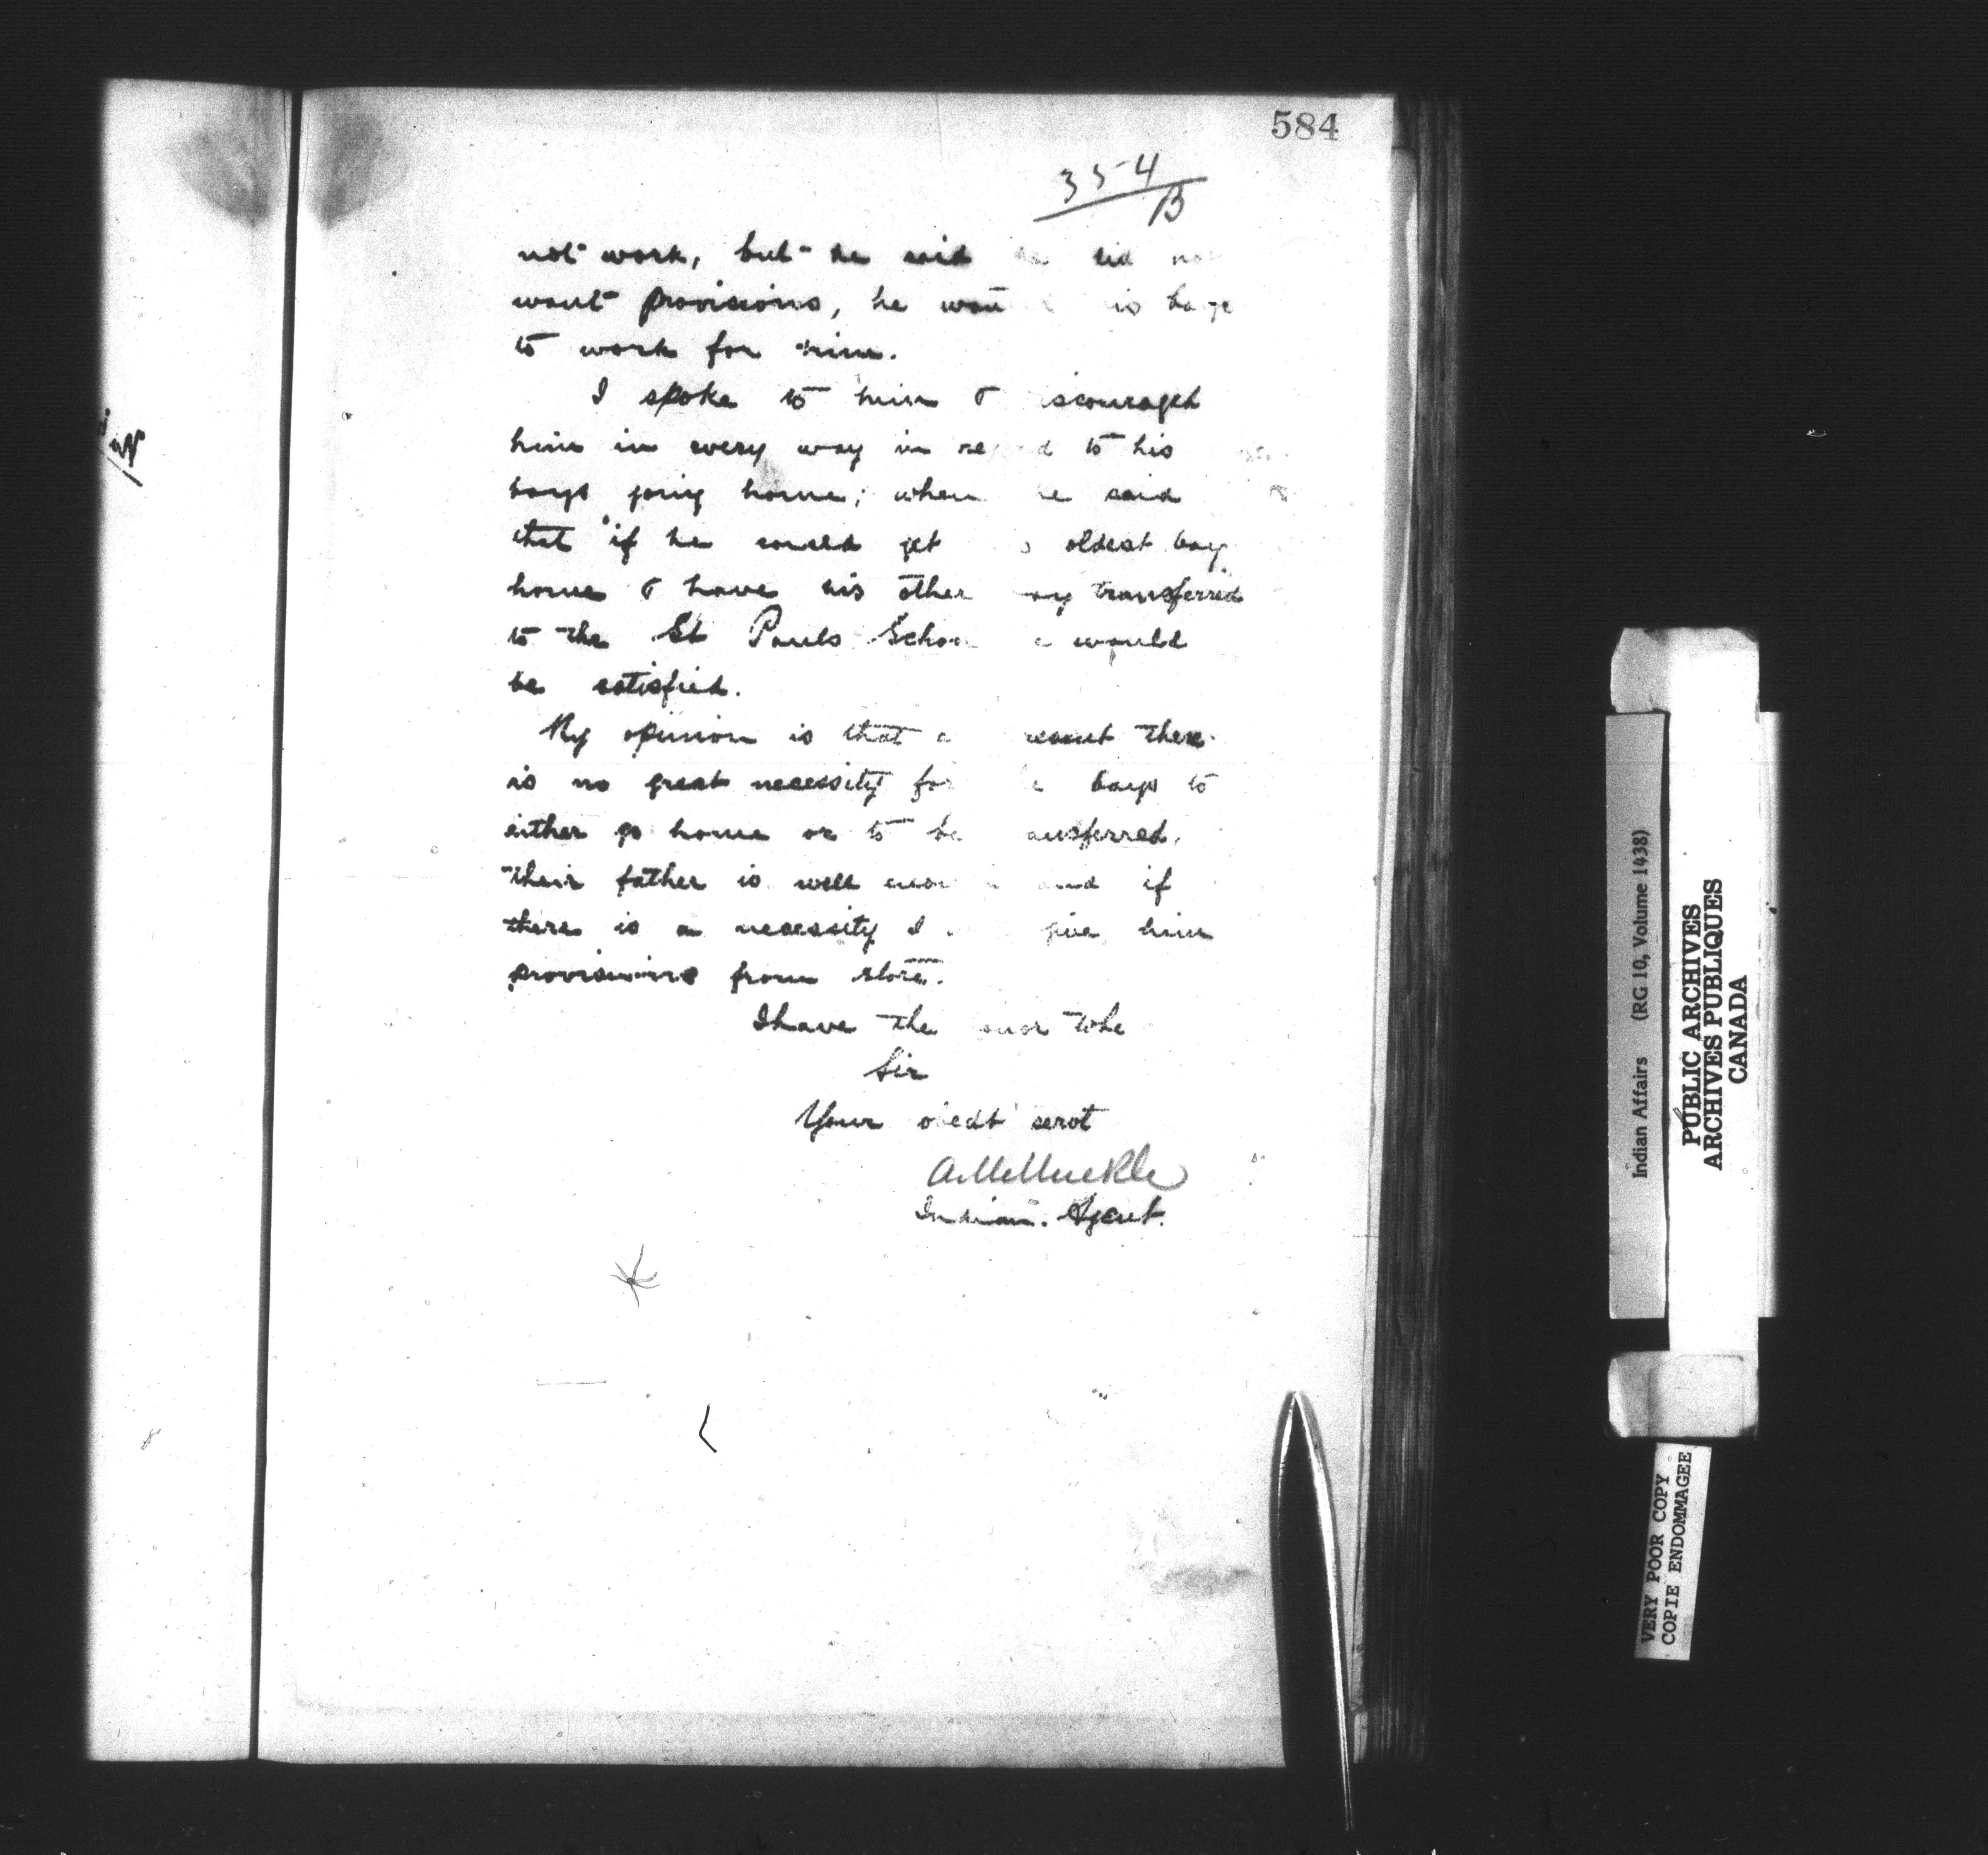 584
354/B
not work, but he said he did not
want provisions, he wan his boys
to work for him.
I spoke to him & iscouraged
him in every way in re d to his
boys going home; when he said
that "if he could get s oldest boy
home & have his other oy transferred
to the St Pauls Schoo e would
be satisfied.
My opinion is that a resent there
is no great necessity for e boys to
either go home or to be ansferred,
their father is well and if
there is a necessity I give him
provisions from store.
I have the onor to be
Sir
Your obedt servt
A M Muckle
Indian Agent.
Indian Affairs (RG 10, Volume 1438)
PUBLIC ARCHIVES
ARCHIVES PUBLIQUES
CANADA
VERY POOR COPY
COPIE ENDOMMAGEE